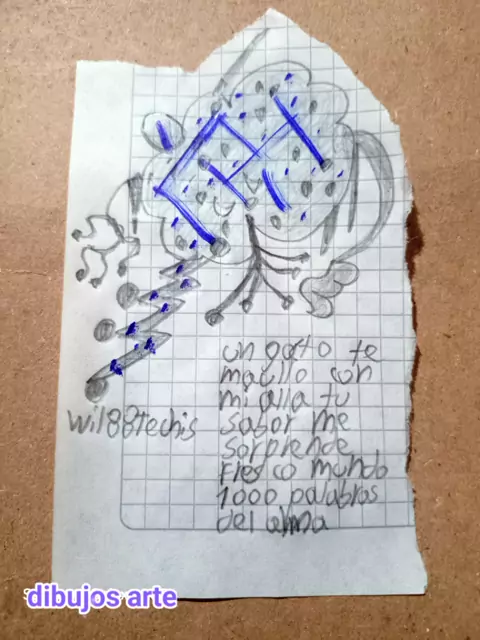 un gato te
maullo con
mi alla tu
wil88techis
sabor me
sorprende
fresco mundo
1000 palabras
del alma
dibujos arte